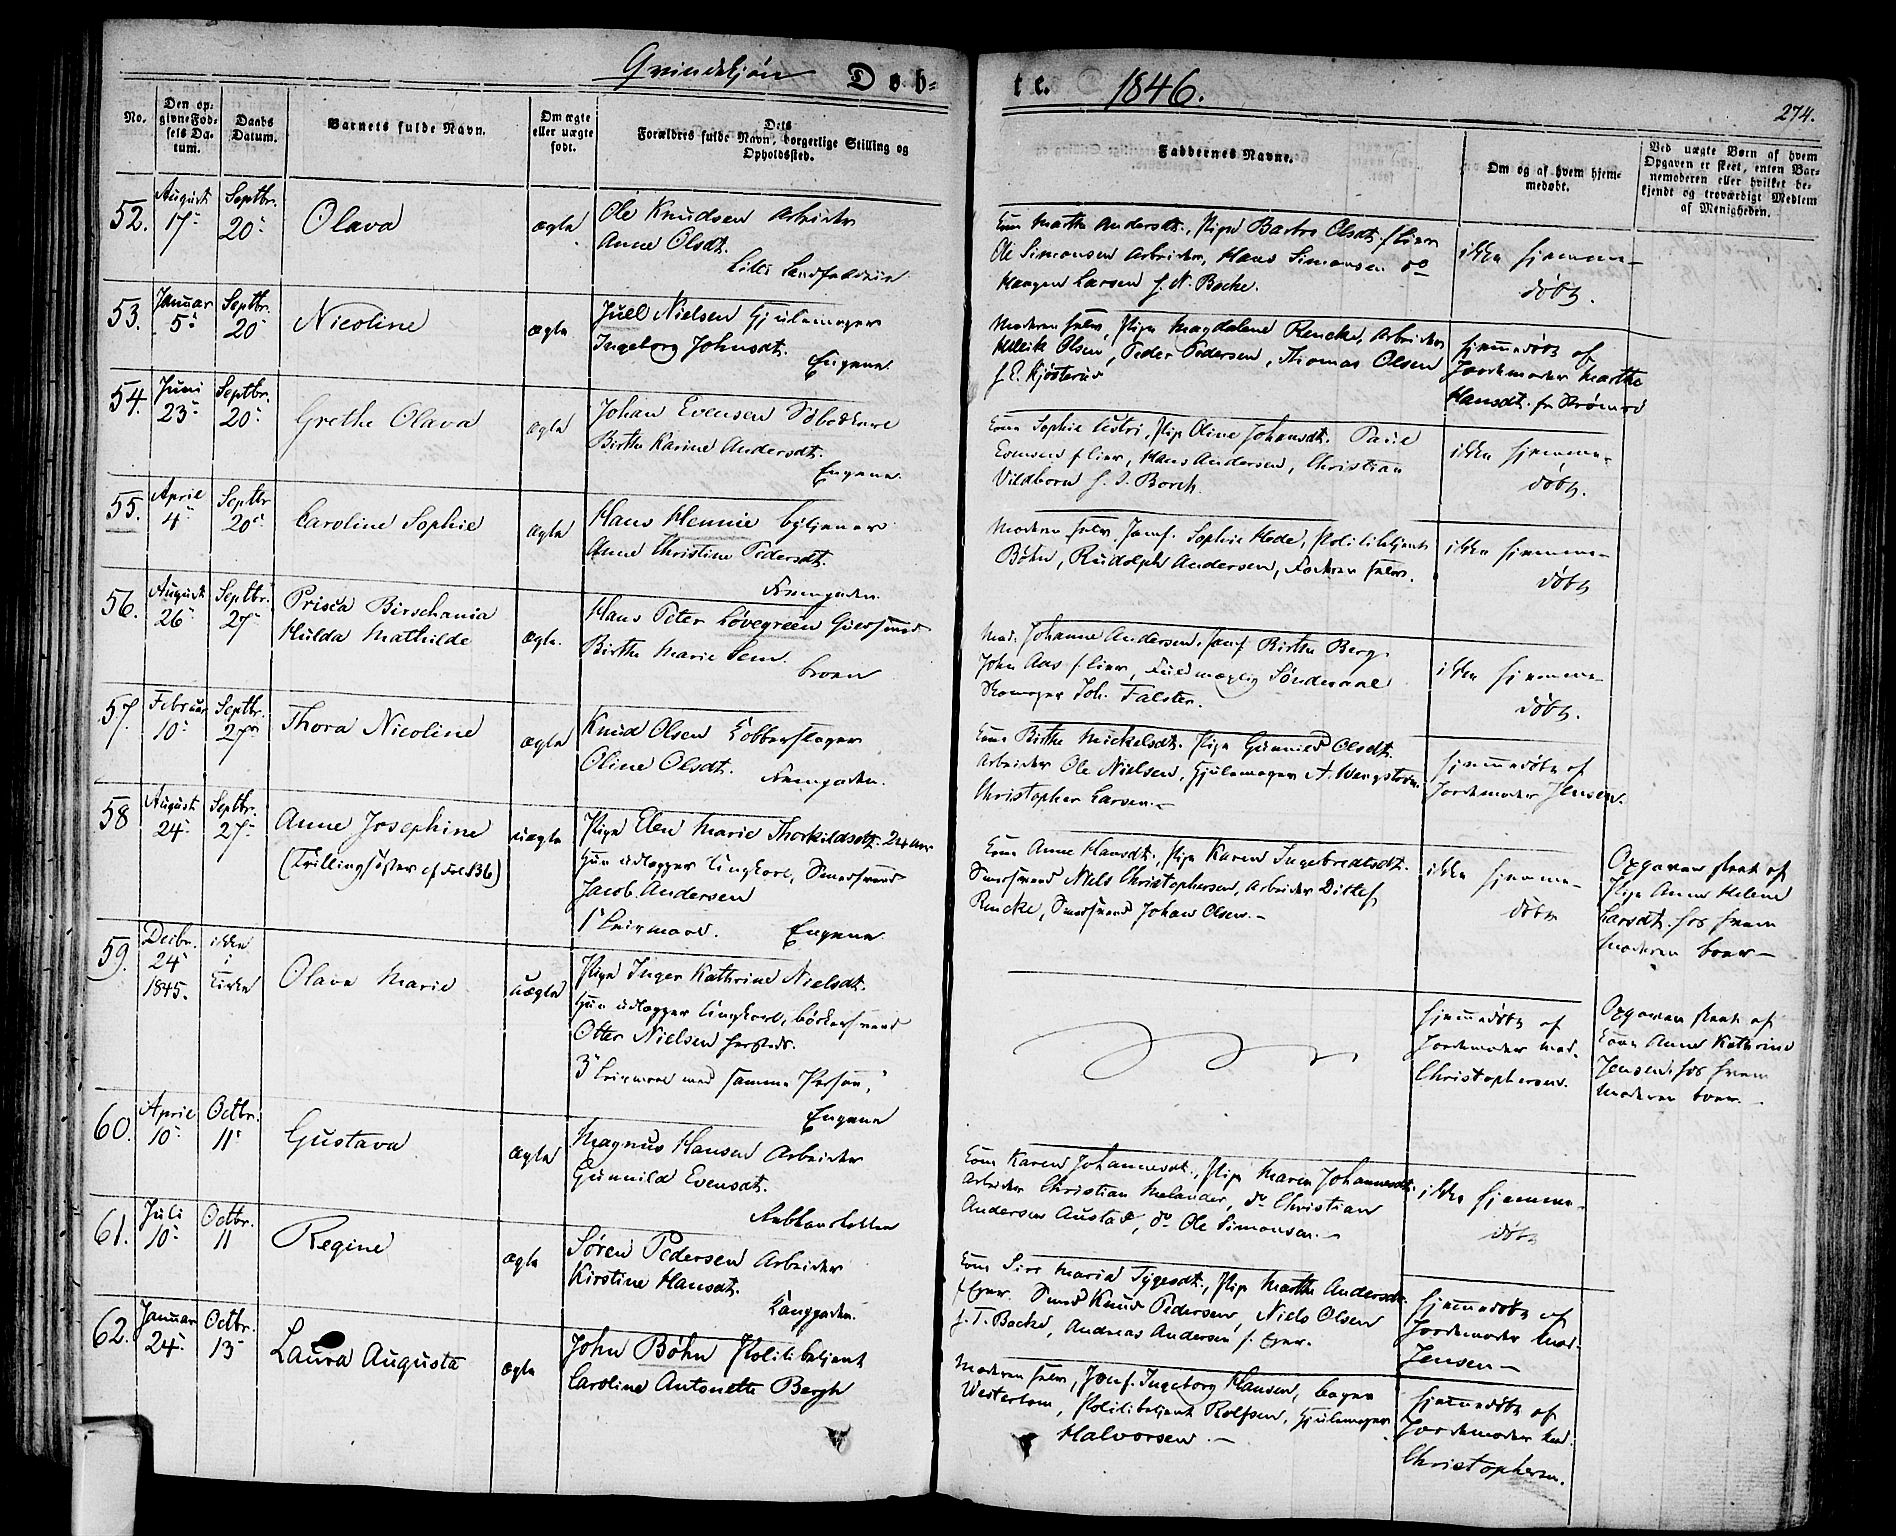 Qvindekjön Døb-
te. 1846.
274.
No.
Den op-
givne Fød-
sels Da-
tum.
Daabs
Datum.
Barnets fulde Navn.
Om ægte
eller uægte
født.
Dets
Forældres fulde Navn, borgerlige Stilling og
Opholdssted.
Faddernes Navne.
Om og af hvem hjem-
medøbt.
Ved uægte Børn af hvem
Opgaven er skeet, enten Bar-
nemoderen eller hvilket be-
kjendt og troværdigt Medlem
af Menigheden.
52.
August
17
Septbr.
20
Olava
ægte
Ole Knudsen Arbeider
Anne Olsdt.
Lille
Kone Marthe Andersdt., Pige Barbro Olsdt.
Ole Simonsen Arbeider, Hans Simonsen do
Haagen Larsen f. N. Backe.
ikke hjemme-
døbt.
53.
Januar
5
Septbr.
20
Nicoline
ægte
Juel Nielsen Hjulemager
Ingeborg Johnsdt.
Engene
Moderen selv, Pige Magdalene Rencke, Arbeider
Olsen, Peder Pedersen, Thomas Olsen
f. E. Kjösterud
hjemmedøbt af
Jordemoder Marthe
Hansdt. fra Strömsö
54.
Juni
23
Septbr.
20
Grethe Olava
ægte
Johan Evensen
Birthe Karine Andersdt.
Engene.
Kone Sophie, Pige Oline Johansdt.
Evensen, Hans Andersen, Christian
Vildhorn f. J. Borch.
ikke hjemme-
døbt.
55.
April
4
Septbr
20
Caroline Sophie
ægte
Hans Hennie Bytjener
Anne Christine Pedersdt.
Moderen selv, Jomf. Sophie Hede, Politibetjent
Bøhn, Rudolph Andersen, Faderen selv.
ikke hjemme-
døbt
56.
August
26
Septbr.
27
Prisca Birschania
Hulda Mathilde
ægte.
Hans Peter Løvegreen
Birthe Marie Sem.
Broen
Mad. Johanne Andersen, Jomf Birthe Berg.
John Aas, Fuldmægtig Sönderaal
Skomager Joh. Falster.
ikke hjemme-
døbt.
57.
Februar
10
Septbr.
27
Thora Nicoline
ægte
Knud Olsen Kobberslager
Oline Olsdt.
Kone Birthe Mickelsdt. Pige Gunnild Olsdt.
Arbeider Ole Nielsen, Hjulemager A. Wengström
Christopher Larsen.
hjemmedøbt af
Jordemoder Jensen.
58
August
24
Septbr.
27
Anne Josephine
(Tvillingsöster cf Fol 136)
uægte
Pige Elen Marie Thorkildsdt. 24 aar
Hun udlægger Ungkarl, Smedsvend
Jacob Andersen
1 Leirmaal. Engene
Kone Anne Hansdt., Pige Karen Ingebredtsdt.
Smedsvend Niels Christophersen, Arbeider Ditlef
Rencke, Smedsvend Johan Olsen.
ikke hjemme-
døbt
Opgaven skeet af
Pige Anne Helene
Larsdt. hos hvem
Moderen boer
59.
Decbr.
24
1845.
ikke
i
Kirke
Olava Marie
uægte
Pige Inger Kathrine Nielsdt.
Hun udlægger Ungkarl, Bödkersvend
Otter Nielsen
3 Leirmaal med samme Person,
Engene
hjemmedøbt af
Jordemoder Mad.
Christophersen.
Opgaven skeet af
Kone Anne Kathrine
Jensen, hos hvem
Moderen boer.
60.
April
10
Octbr.
11
Gustava
ægte
Magnus Hansen Arbeider
Gunnild Evensdt.
Kone Karen Johannesdt., Pige Maren Johannesdt.
Arbeider Christian Melander, do Christian
Andersen Austad, do Ole Simonsen.
ikke hjemme-
døbt
61.
Juli
10
Octbr.
11
Regine
ægte
Søren Pedersen Arbeider
Kirstine Hansdt.
Langgaden.
Kone Siri Maria Tygesdt., Pige Marthe Andersdt.
Smed Knud Pedersen, Niels Olsen
f. T. Backe, Andreas Andersen
hjemmedøbt af
Jordemoder Mad.
Jensen
62.
Januar
24
Octbr.
13
Laura Augusta
ægte
John Bøhn Politibetjent
Caroline Antonette Bergh
Moderen selv, Jomf. Ingeborg Hansen, Bager
Westerlom, Politibetjent Rolfsen, Hjulemager
Halvorsen.
hjemmedøbt af
Jordemoder Mad.
Christophersen.